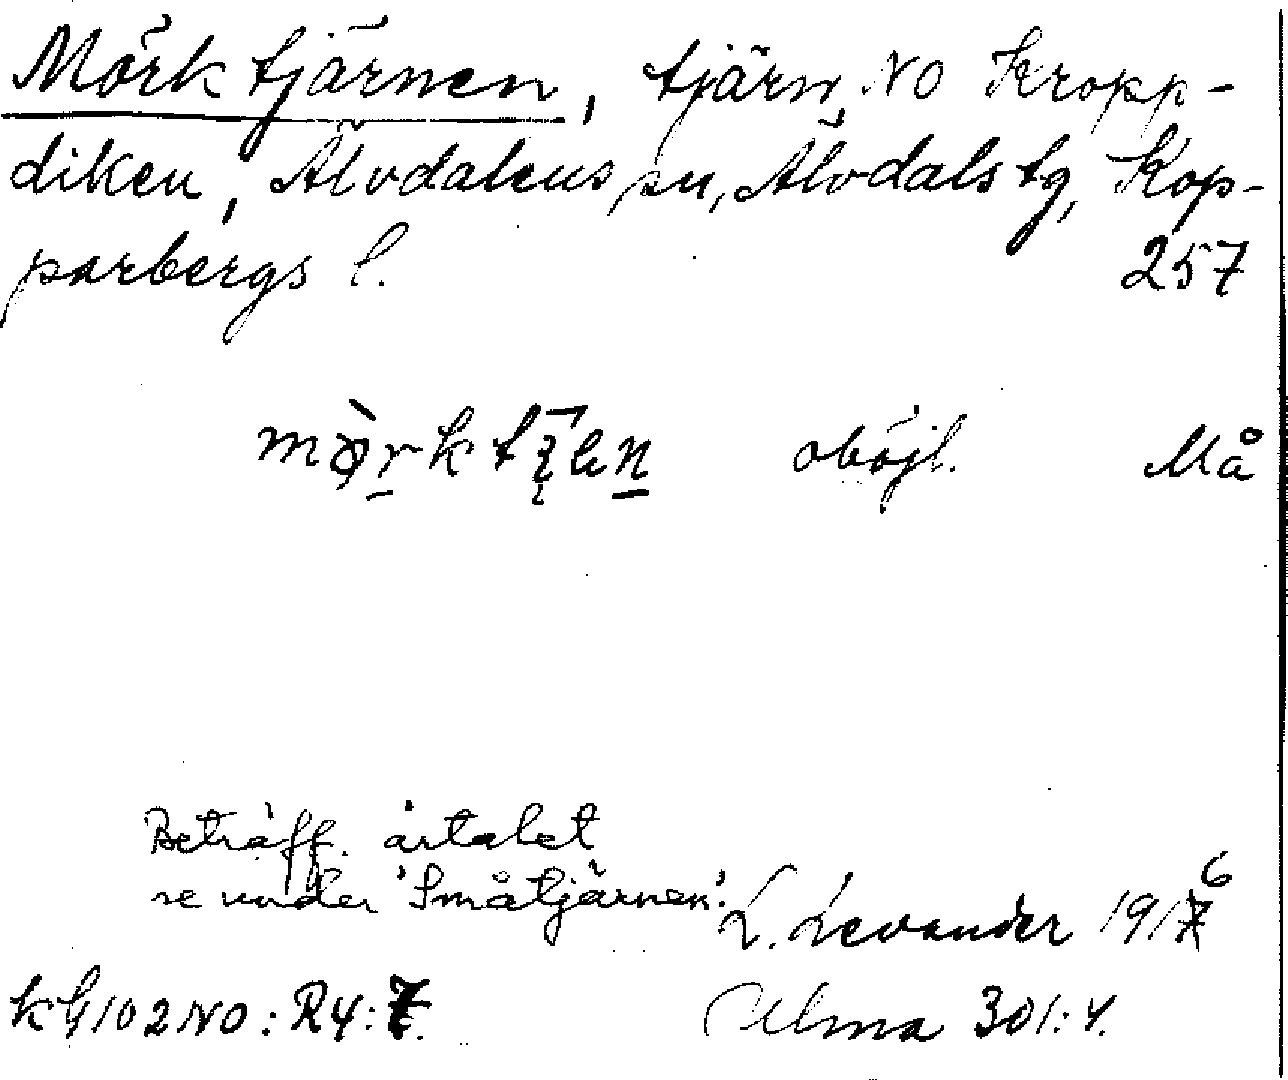 Mörktjärnen, tjärn, NO Kropp-
diken, Älvdalens sn, Älvdals tg, Kop-
parbergs l. 257
oböjl. Må
Beträff. årtalet
se under 'Småtjärnen'.
L. Levander 1916
KG 102 NO: R4:7.
Ulma 301:4.